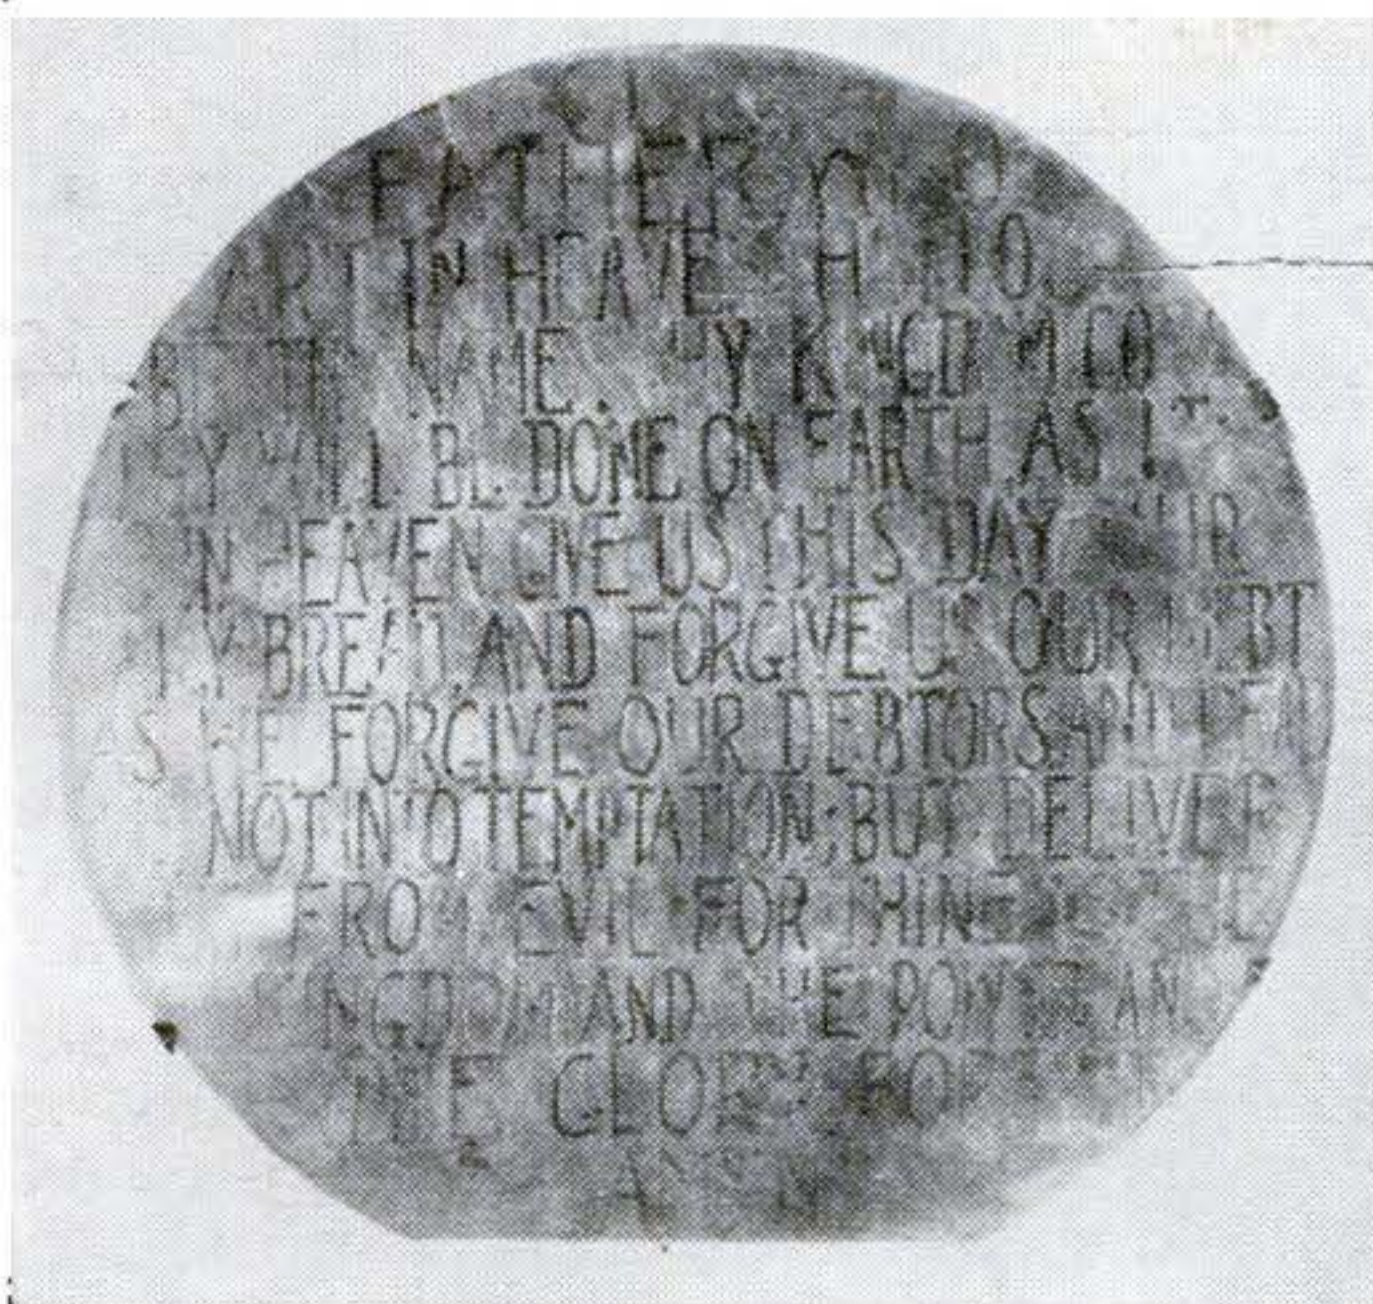 FATHER
ART IN HEAVE
BE NAME. KINGDOM CO
WILL BE DONE ON EARTH AS IT
IN HEAVEN. GIVE US THIS DAY OUR
LY BREAD. AND FORGIVE US OUR DEBT
S WE FORGIVE OUR DEBTORS. AND LEAD
NOT INTO TEMPTATION; BUT DELIVER
FROM EVIL FOR THINE IS THE
KINGDOM AND THE POWER AN
THE GLORY FOR